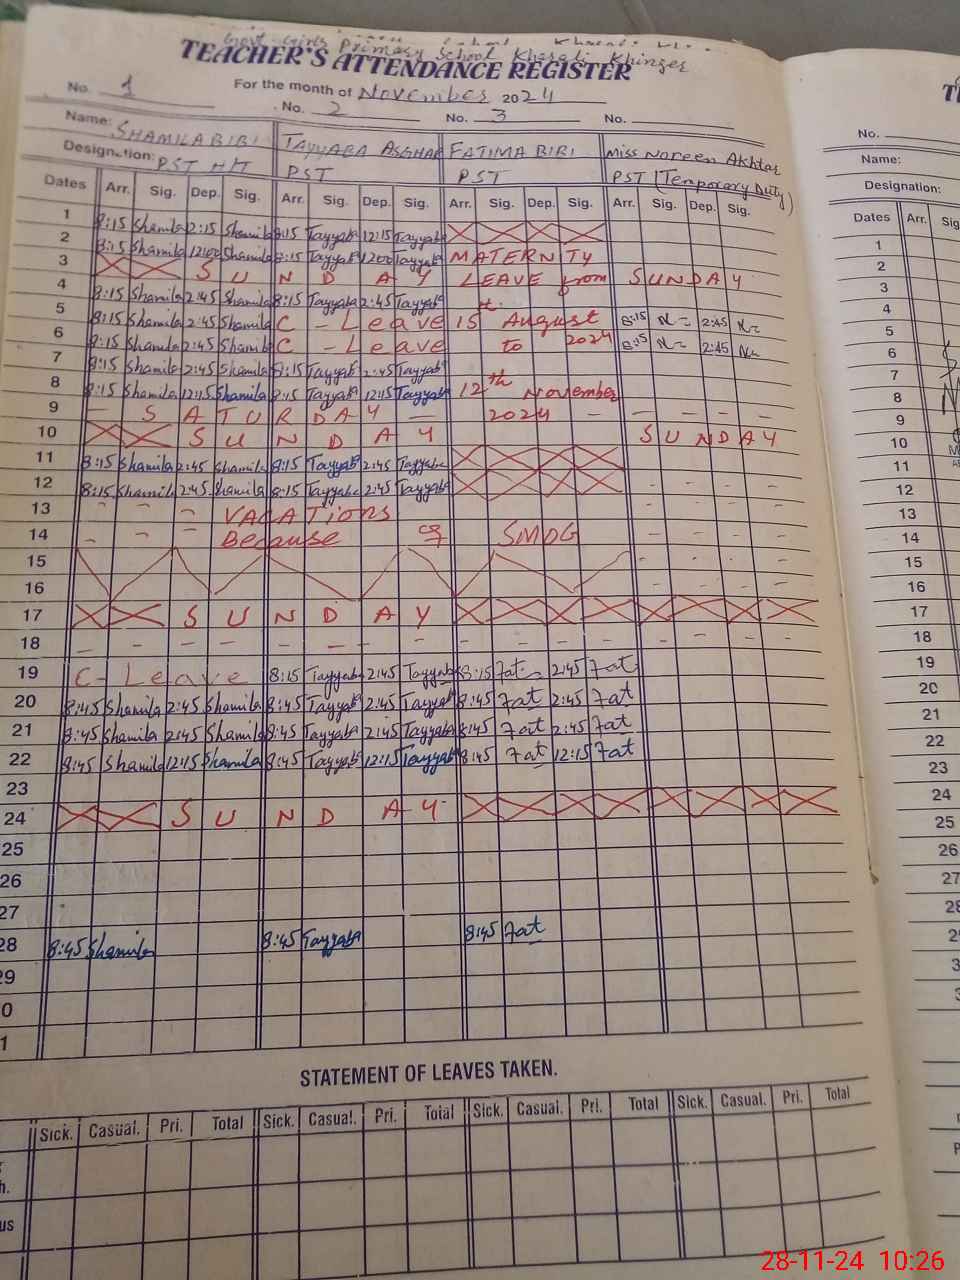 Primary School Kharali Khinger
TEACHER'S ATTENDANCE REGISTER
For the month of November 2024
No. 1 No. 2 No. 3 No.
Name: SHAMILA BIBI TAYYABA ASGHAR FATIMA BIBI Miss Noreen Akhtar
Designation: PST H/T PST PST PST (Temporary Duty)
Dates Arr. Sig. Dep. Sig. Arr. Sig. Dep. Sig. Arr. Sig. Dep. Sig. Arr. Sig. Dep. Sig.
1 8:15 Shamila 2:15 Shamila 8:15 Tayyaba 12:15 Tayyaba
2 8:15 Shamila 12:00 Shamila 8:15 Tayyaba 12:00 Tayyaba MATERNITY
3 SUNDAY LEAVE from SUNDAY
4 8:15 Shamila 2:45 Shamila 8:15 Tayyaba 2:45 Tayyaba
5 8:15 Shamila 2:45 Shamila C - Leave 15 August 8:15 2:45
6 8:15 Shamila 2:45 Shamila C - Leave to 2024 8:15 2:45
7 8:15 Shamila 2:45 Shamila 8:15 Tayyaba 2:45 Tayyaba
8 8:15 Shamila 12:15 Shamila 8:15 Tayyaba 12:15 Tayyaba 12th November
9 - SATURDAY 2024 - - - - -
10 SUNDAY SUNDAY
11 8:15 Shamila 2:45 Shamila 8:15 Tayyab 2:45 Tayyaba
12 8:15 Shamila 2:45 Shamila 8:15 Tayyaba 2:45 Tayyaba - - - -
13 - - - VACATIONS - - - -
14 - - - Because of SMOG - - - -
15 - - - -
16 - - - -
17 SUNDAY
18 - - - - - - - - - - - - - - - -
19 C- Leave 8:15 Tayyaba 2:45 Tayyaba 8:15 Fat 2:45 Fat
20 8:45 Shamila 2:45 Shamila 8:45 Tayyab 2:45 Tayyab 8:45 Fat 2:45 Fat
21 8:45 Shamila 2:45 Shamila 8:45 Tayyaba 2:45 Tayyaba 8:45 Fat 2:45 Fat
22 8:45 Shamila 12:15 Shamila 8:45 Tayyaba 12:15 Tayyaba 8:45 Fat 12:15 Fat
23
24 SUNDAY
25
26
27
28 8:45 Shamila 8:45 Tayyaba 8:45 Fat
29
0
1
STATEMENT OF LEAVES TAKEN.
Sick. Casual. Pri. Total Sick. Casual. Pri. Total Sick. Casual. Pri. Total Sick. Casual. Pri. Total
h.
us
No.
Name:
Designation:
Dates Arr. Sig
1
2
3
4
5
6
7
8
9
10
11
12
13
14
15
16
17
18
19
20
21
22
23
24
25
26
27
28
28-11-24 10:26